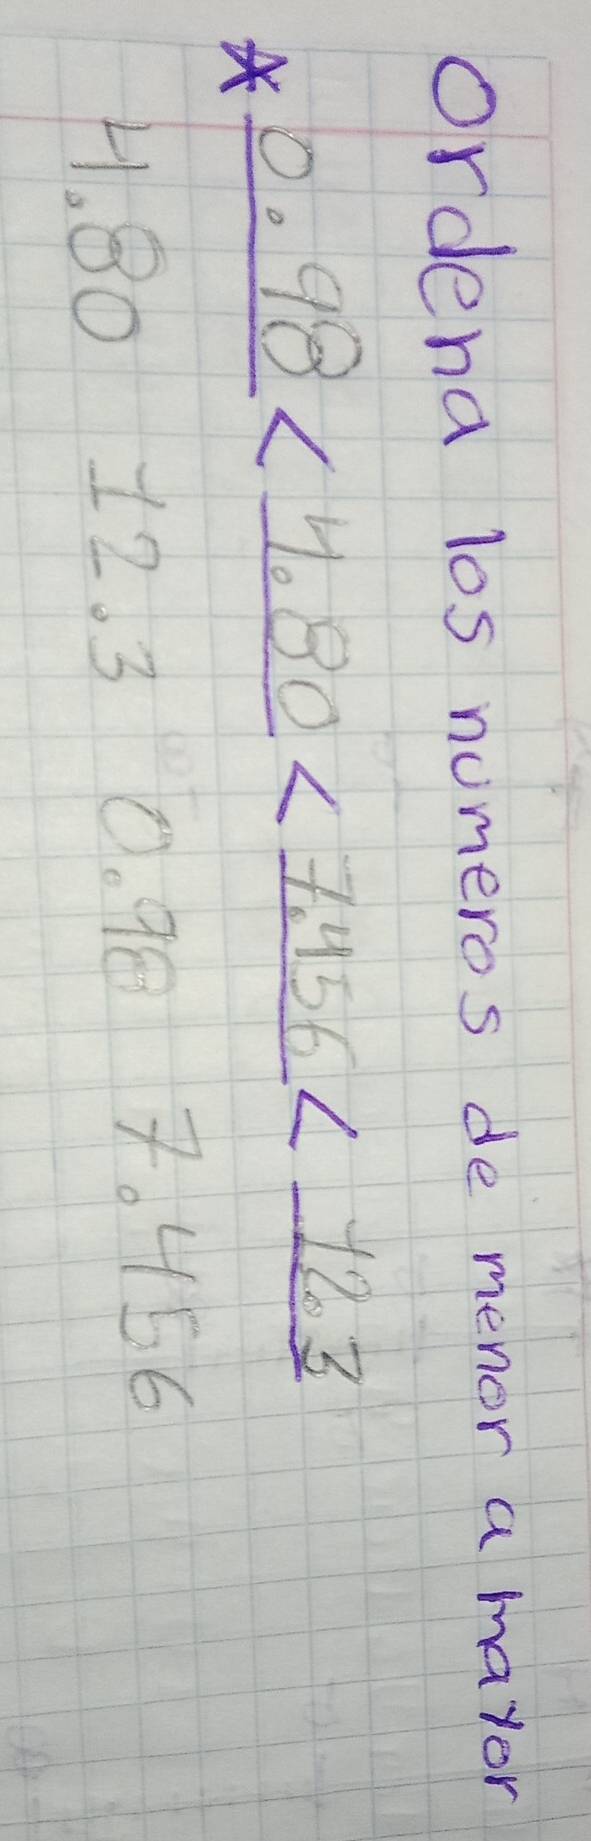 Ordena los números de menor a mayor
* 0.98 < 4.80 < 7.456 < 12.3
4.80 12.3 0.98 7.456